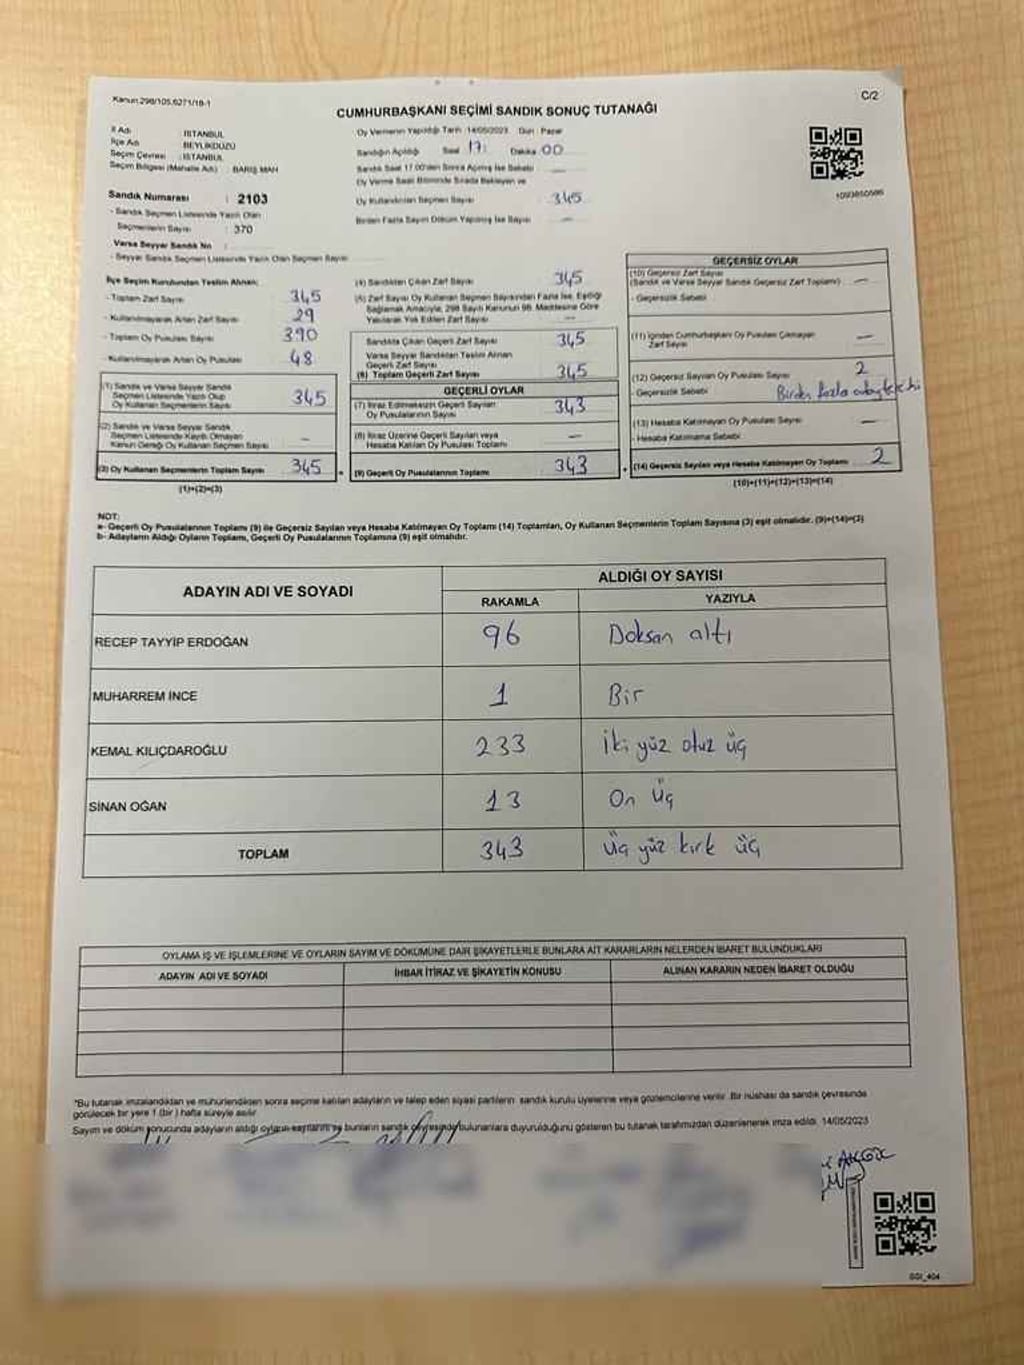 Kanun:298/105,6271/18-1
C/2
CUMHURBAŞKANI SEÇİMİ SANDIK SONUÇ TUTANAĞI
İl Adı : İSTANBUL
İlçe Adı : BEYLİKDÜZÜ
Seçim Çevresi : İSTANBUL
Seçim Bölgesi (Mahalle Adı) : BARIŞ MAH
Sandık Numarası : 2103
- Sandık Seçmen Listesinde Yazılı Olan
Seçmenlerin Sayısı : 370
Varsa Seyyar Sandık No :
- Seyyar Sandık Seçmen Listesinde Yazılı Olan Seçmen Sayısı
Oy Vermenin Yapıldığı Tarih :14/05/2023 Gün : Pazar
Sandığın Açıldığı Saat 17: Dakika 00
Sandık Saat 17.00'den Sonra Açılmış İse Sebebi —
Oy Verme Saati Bitiminde Sırada Bekleyen ve
Oy Kullandırılan Seçmen Sayısı 345
Birden Fazla Sayım Döküm Yapılmış İse Sayısı —
1093850586
İlçe Seçim Kurulundan Teslim Alınan;
- Toplam Zarf Sayısı 345
- Kullanılmayarak Artan Zarf Sayısı 29
- Toplam Oy Pusulası Sayısı 390
- Kullanılmayarak Artan Oy Pusulası 48
(1) Sandık ve Varsa Seyyar Sandık
Seçmen Listesinde Yazılı Olup
Oy Kullanan Seçmenlerin Sayısı 345
(2) Sandık ve Varsa Seyyar Sandık
Seçmen Listesinde Kayıtlı Olmayan
Kanun Gereği Oy Kullanan Seçmen Sayısı —
(3) Oy Kullanan Seçmenlerin Toplam Sayısı 345
(1)+(2)=(3)
(4) Sandıktan Çıkan Zarf Sayısı 345
(5) Zarf Sayısı Oy Kullanan Seçmen Sayısından Fazla İse, Eşitliği
Sağlamak Amacıyla, 298 Sayılı Kanunun 98. Maddesine Göre
Yakılarak Yok Edilen Zarf Sayısı —
Sandıkta Çıkan Geçerli Zarf Sayısı 345
Varsa Seyyar Sandıktan Teslim Alınan
Geçerli Zarf Sayısı
(6) Toplam Geçerli Zarf Sayısı 345
GEÇERLİ OYLAR
(7) İtiraz Edilmeksizin Geçerli Sayılan
Oy Pusulalarının Sayısı 343
(8) İtiraz Üzerine Geçerli Sayılan veya
Hesaba Katılan Oy Pusulası Toplamı —
(9) Geçerli Oy Pusulalarının Toplamı 343
GEÇERSİZ OYLAR
(10) Geçersiz Zarf Sayısı
(Sandık ve Varsa Seyyar Sandık Geçersiz Zarf Toplamı) —
- Geçersizlik Sebebi
(11) İçinden Cumhurbaşkanı Oy Pusulası Çıkmayan
Zarf Sayısı —
(12) Geçersiz Sayılan Oy Pusulası Sayısı 2
- Geçersizlik Sebebi Birden fazla
(13) Hesaba Katılmayan Oy Pusulası Sayısı —
- Hesaba Katılmama Sebebi
(14) Geçersiz Sayılan veya Hesaba Katılmayan Oy Toplamı 2
(10)+(11)+(12)+(13)=(14)
NOT:
a- Geçerli Oy Pusulalarının Toplamı (9) ile Geçersiz Sayılan veya Hesaba Katılmayan Oy Toplamı (14) Toplamları, Oy Kullanan Seçmenlerin Toplam Sayısına (3) eşit olmalıdır. (9)+(14)=(3)
b- Adayların Aldığı Oyların Toplamı, Geçerli Oy Pusulalarının Toplamına (9) eşit olmalıdır.
ADAYIN ADI VE SOYADI
ALDIĞI OY SAYISI
RAKAMLA YAZIYLA
RECEP TAYYİP ERDOĞAN 96 Doksan altı
MUHARREM İNCE 1 Bir
KEMAL KILIÇDAROĞLU 233 İki yüz otuz üç
SİNAN OĞAN 13 On üç
TOPLAM 343 Üç yüz kırk üç
OYLAMA İŞ VE İŞLEMLERİNE VE OYLARIN SAYIM VE DÖKÜMÜNE DAİR ŞİKAYETLERLE BUNLARA AİT KARARLARIN NELERDEN İBARET BULUNDUKLARI
ADAYIN ADI VE SOYADI İHBAR İTİRAZ VE ŞİKAYETİN KONUSU ALINAN KARARIN NEDEN İBARET OLDUĞU
*Bu tutanak imzalandıktan ve mühürlendikten sonra seçime katılan adayların ve talep eden siyasi partilerin sandık kurulu üyelerine veya gözlemcilerine verilir. Bir nüshası da sandık çevresinde
görülecek bir yere 1 (bir ) hafta süreyle asılır.
Sayım ve döküm sonucunda adayların aldığı oyların sayılarını ve bunların sandık çevresinde bulunanlara duyurulduğunu gösteren bu tutanak tarafımızdan düzenlenerek imza edildi. 14/05/2023
SGI_404